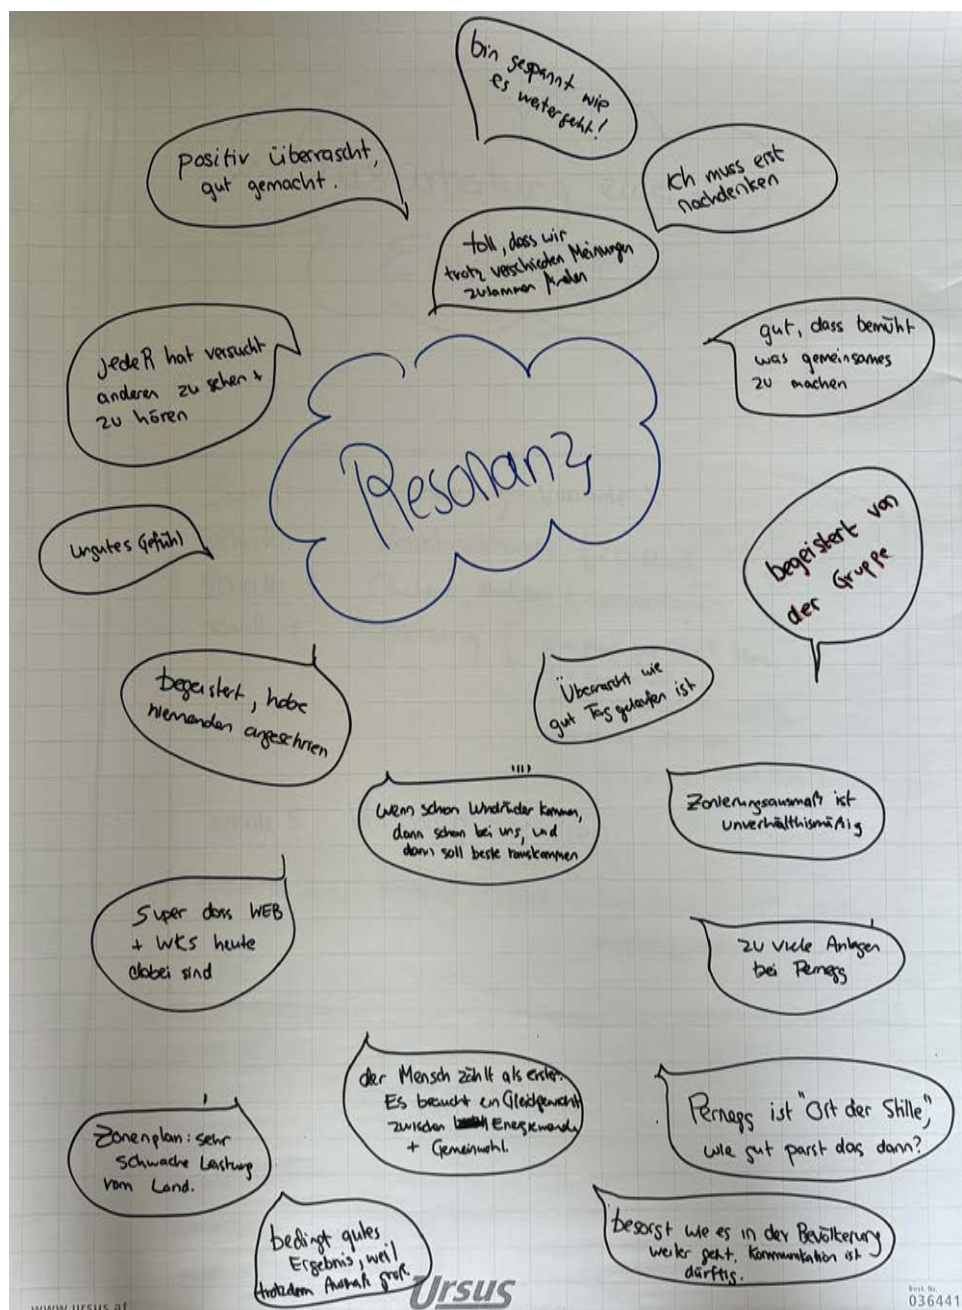 bin gespannt wie
es weitergeht!
positiv überrascht,
gut gemacht.
Ich muss erst
nachdenken
toll, dass wir
trotz verschieden Meinungen
zusammen finden
jedeR hat versucht
anderen zu sehen +
zu hören
gut, dass bemüht
was gemeinsames
zu machen
Resonanz
ungutes Gefühl
begeistert von
der Gruppe
begeistert, habe
niemanden angeschrien
Überrascht wie
gut Tag gelaufen ist
wenn schon Windräder kommen,
dann schon bei uns, und
dann soll beste rauskommen
Zonierungsausmaß ist
unverhältnismäßig
Super dass WEB
+ WKS heute
dabei sind
zu viele Anlagen
bei Pernegg
der Mensch zählt als erster.
Es braucht ein Gleichgewicht
zwischen Energiewende
+ Gemeinwohl.
Pernegg ist "Ort der Stille",
wie gut passt das dann?
Zonenplan: sehr
schwache Leistung
vom Land.
bedingt gutes
Ergebnis, weil
trotzdem Ausmaß groß.
besorgt wie es in der Bevölkerung
weiter geht. Kommunikation ist
dürftig.
www.ursus.at
Ursus
Best. Nr.
036441